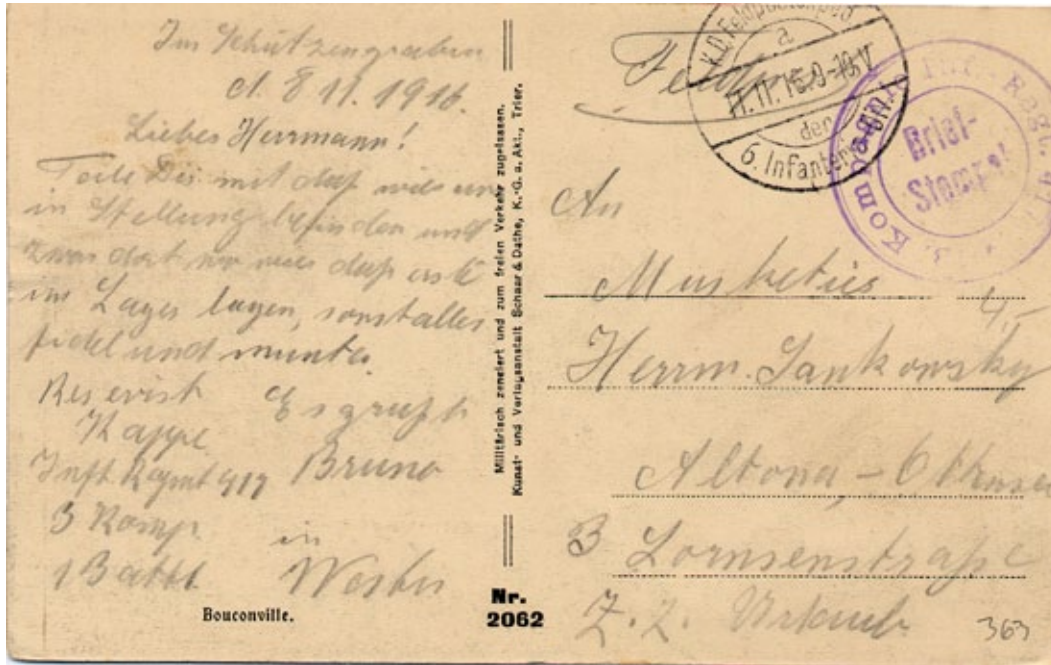 Im Schützengraben
d. 8 11. 1916.
Liebes Herrmann!
Teile Dir mit daß wir uns
in Stellung befinden und
zwar dort wo wir daß erste
im Lager lagen, sonst alles
fidel und munter.
Reservist Es grüßt
Kappe
Inft Regmt 417 Bruno
3 Komp. in
1 Batll Westen
Bouconville.
Militärisch zensiert und zum freien Verkehr zugelassen.
Kunst- und Verlagsanstalt Schaar & Dathe, K.-G. a. Akt., Trier.
Nr.
2062
K.D. Feldpostexped
a
11.11.16.9-10.V
der
6. Infanterie-Div.
Inf.-Regt. 417
Kompagnie
3.
Brief-
Stempel
An
Musketier
Herrm. Jankowsky
Altona-Ottensen
3 Lornsenstraße 4I
Z. Z. Urlaub.
363